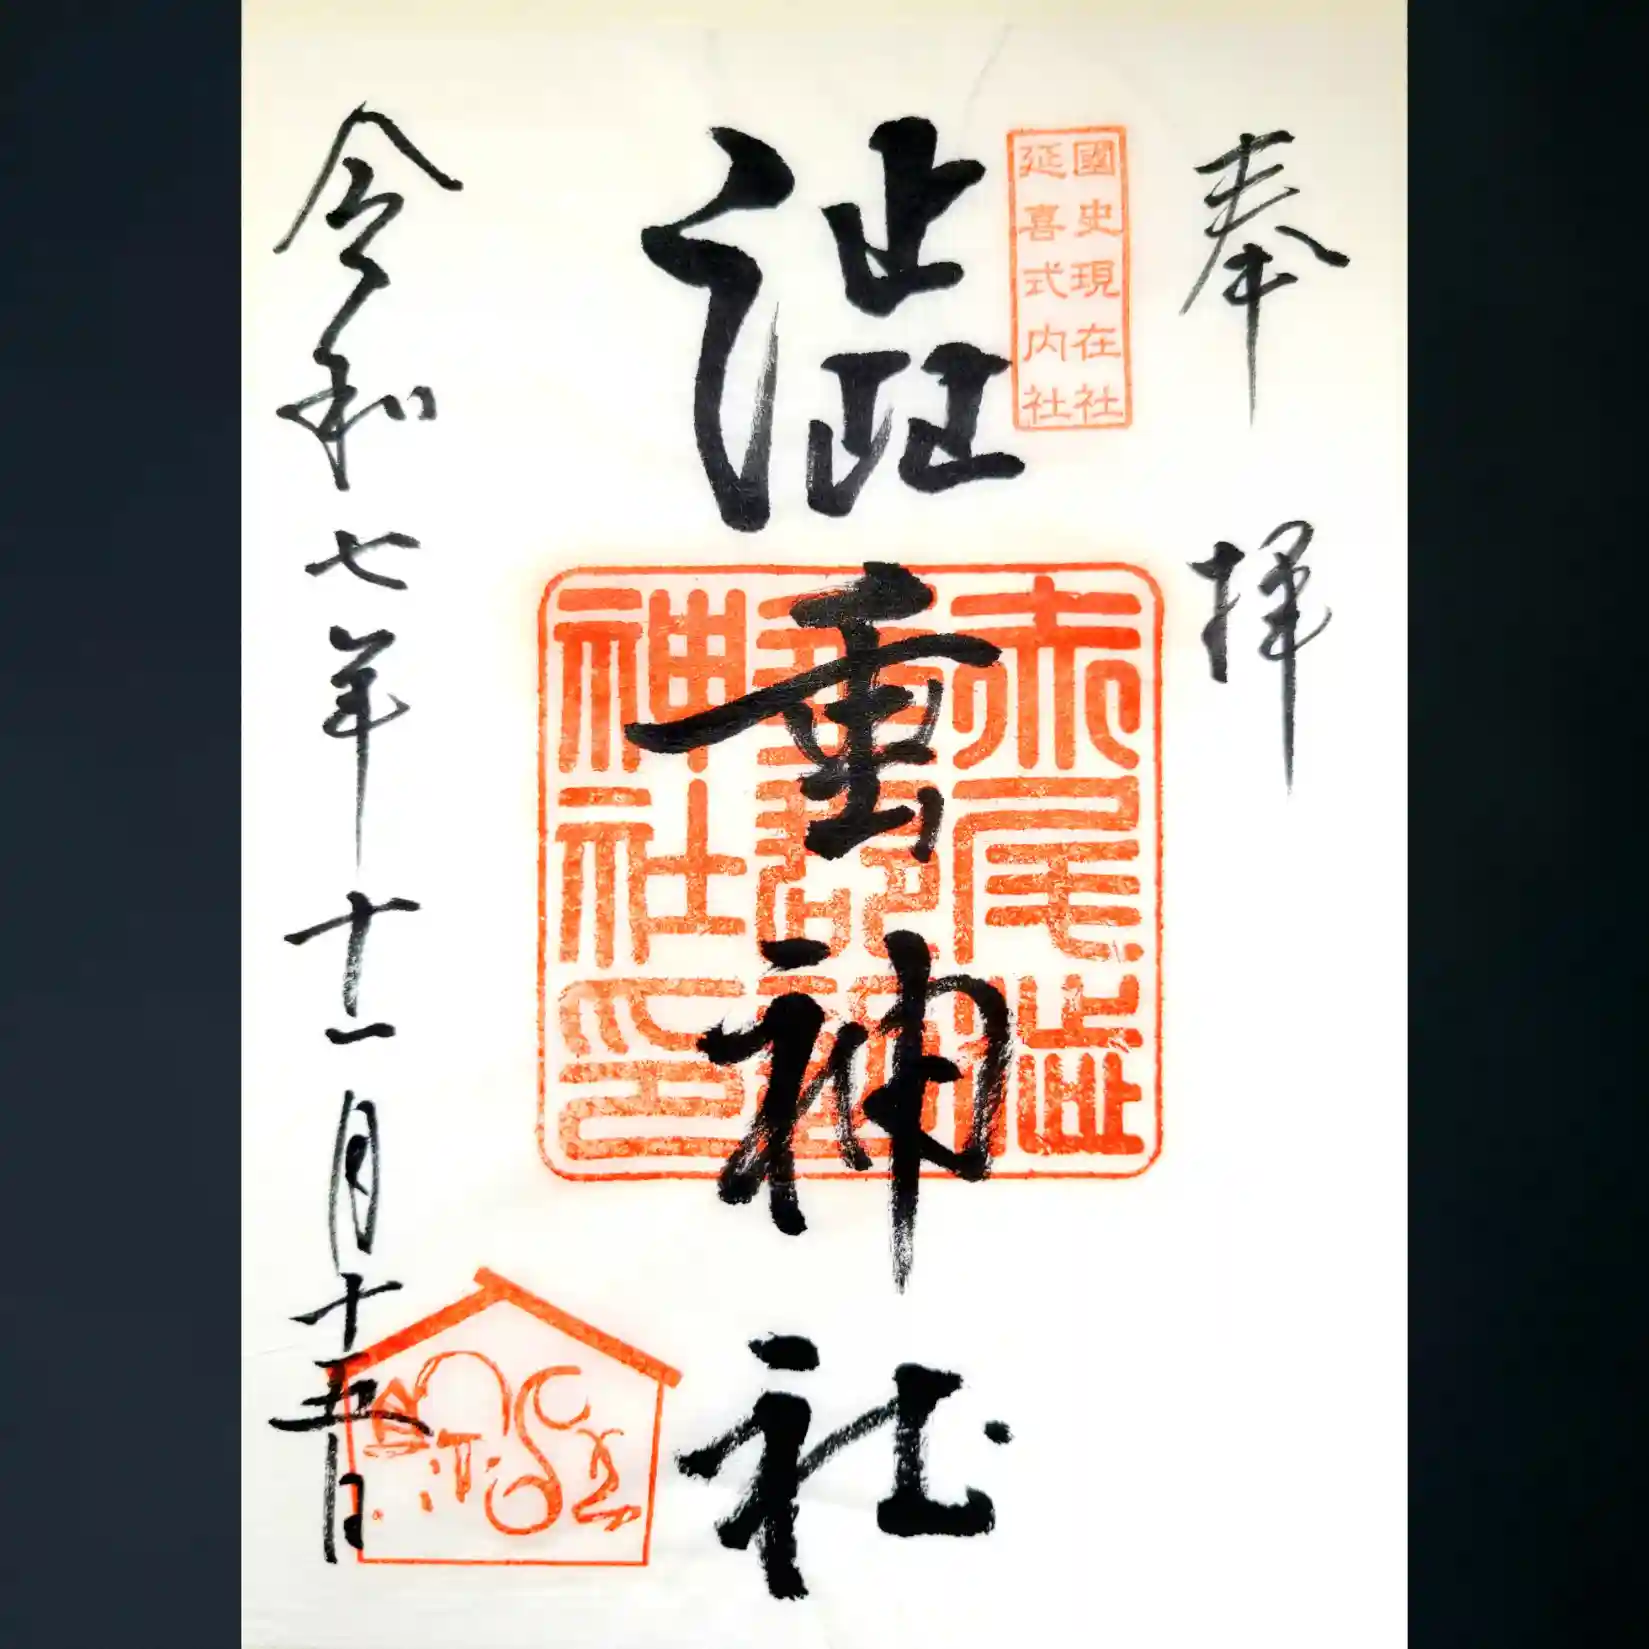 奉拝
國史現在社
延喜式内社
澁垂神社
赤尾澁
垂郡邊
神社印
令和七年十一月十五日